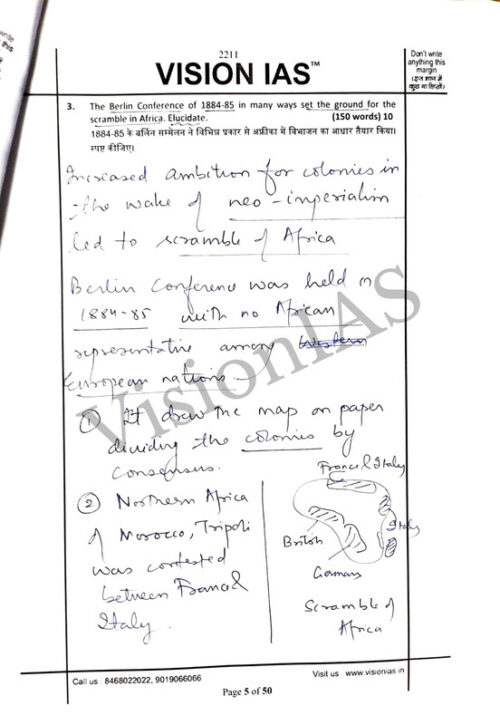 2211
VISION IAS™
Don't write
anything this
margin
(इस भाग में
कुछ ना लिखें)
3. The Berlin Conference of 1884-85 in many ways set the ground for the
scramble in Africa. Elucidate. (150 words) 10
1884-85 के बर्लिन सम्मेलन ने विभिन्न प्रकार से अफ्रीका में विभाजन का आधार तैयार किया।
स्पष्ट कीजिए।
Increased ambition for colonies in
the wake of neo-imperialism
led to scramble of Africa
Berlin Conference was held in
1884-85 with no African
representative among
European nations
① It drew the map on paper
dividing the colonies by
consensus.
② Northern Africa
of Morocco, Tripoli
was contested
between France &
Italy.
France & Italy
Italy
British
Germany
Scramble of
Africa
VisionIAS
Call us : 8468022022, 9019066066
Visit us www.visionias.in
Page 5 of 50